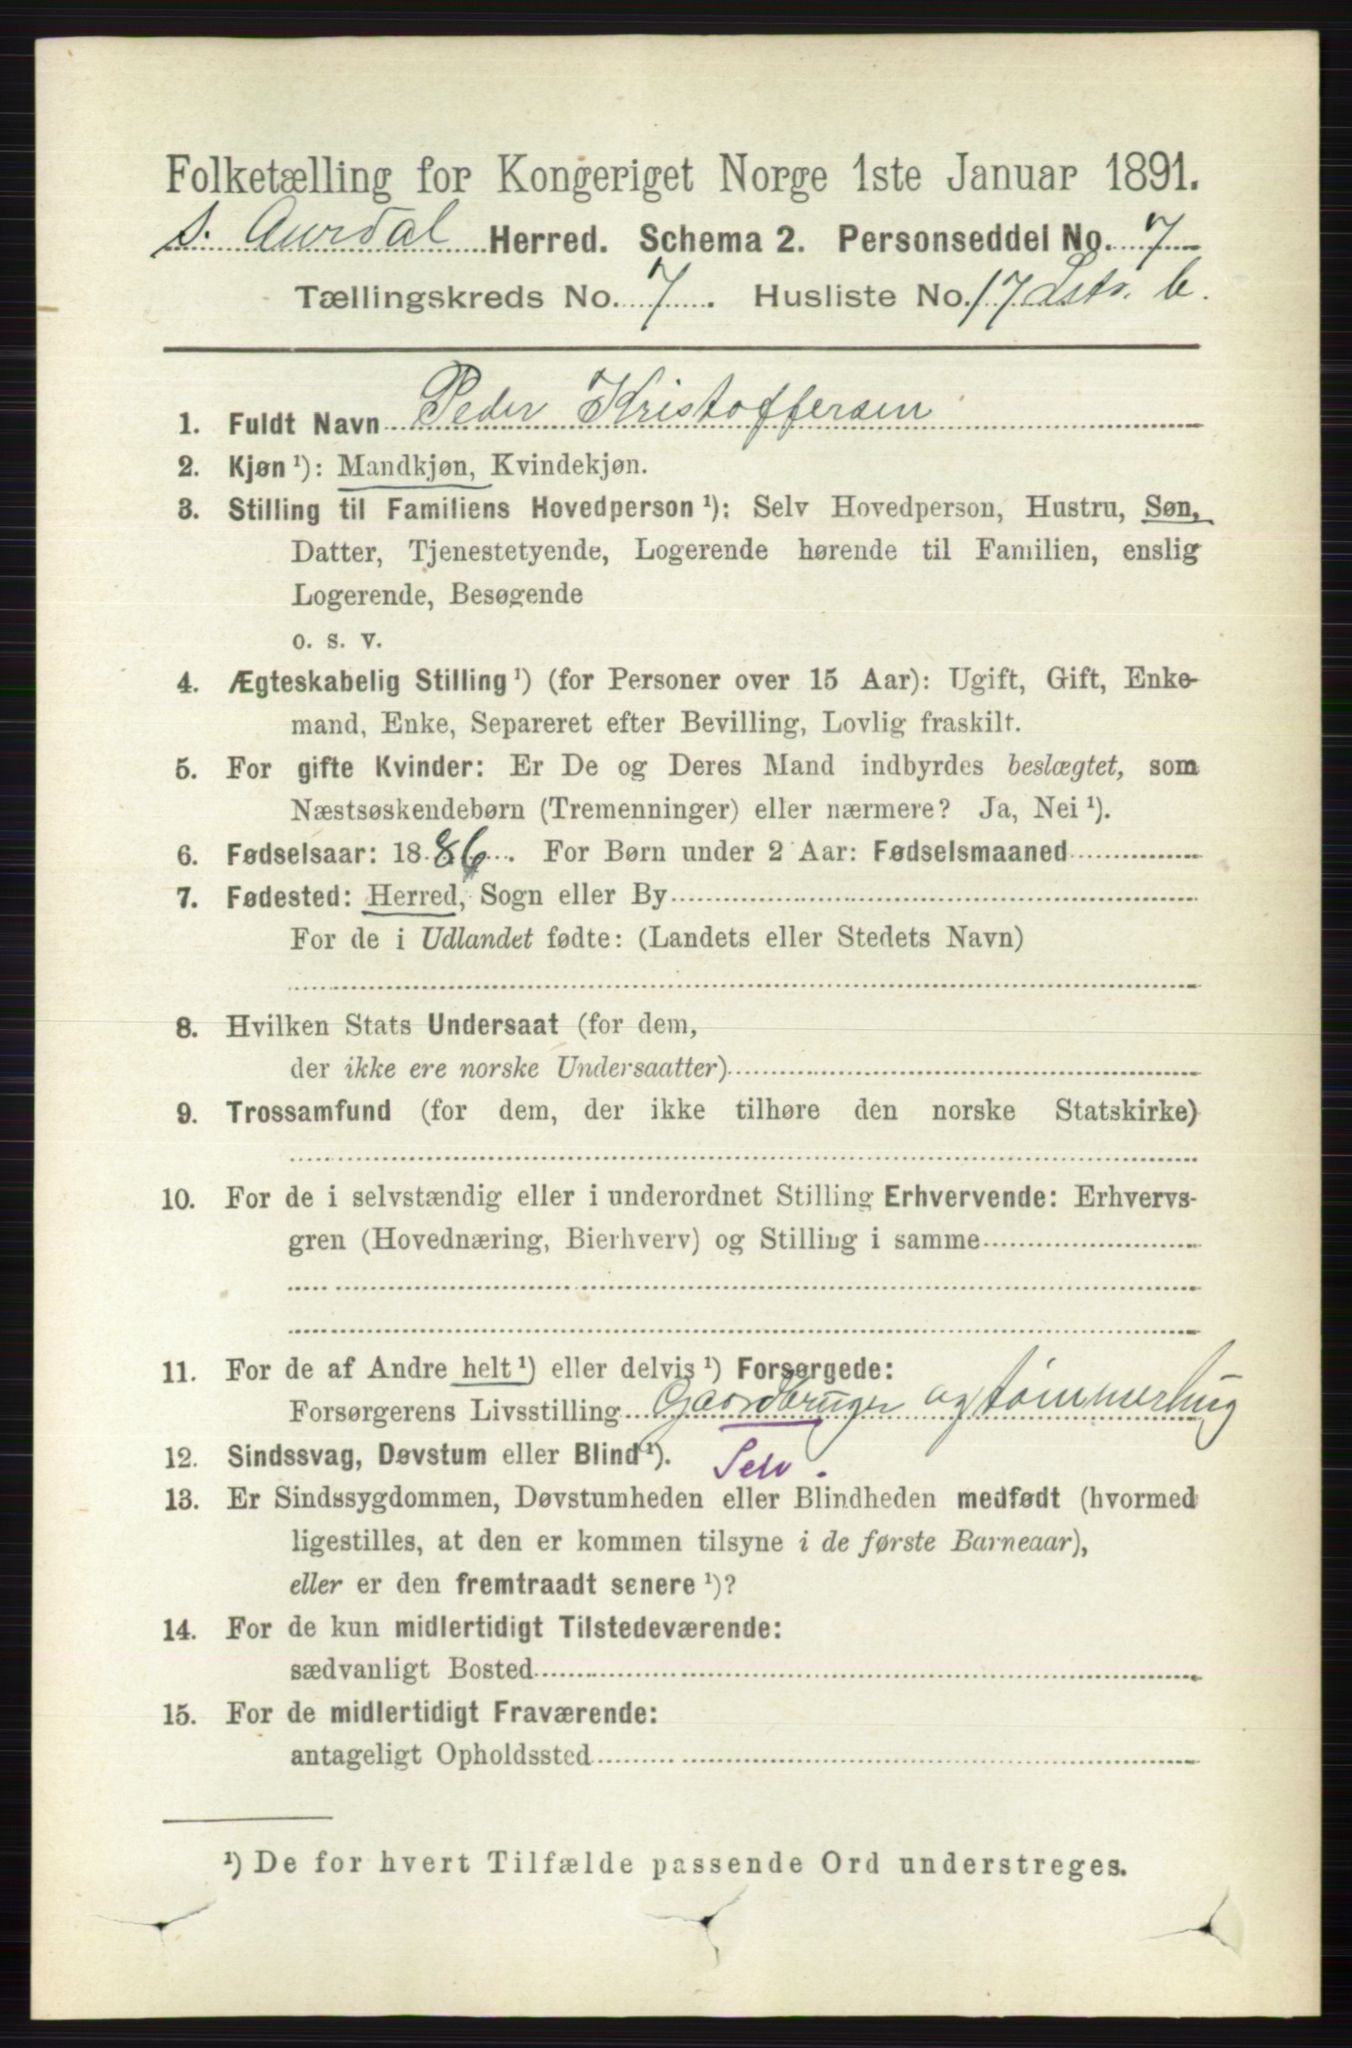 Folketælling for Kongeriget Norge 1ste Januar 1891.
S. Aurdal Herred. Schema 2. Personseddel No. 7
Tællingskreds No. 7. Husliste No. 17 Lstr. b.
1. Fuldt Navn Peder Kristoffersen
2. Kjøn¹): Mandkjøn, Kvindekjøn.
3. Stilling til Familiens Hovedperson¹): Selv Hovedperson, Hustru, Søn,
Datter, Tjenestetyende, Logerende hørende til Familien, enslig
Logerende, Besøgende
o. s. v.
4. Ægteskabelig Stilling¹) (for Personer over 15 Aar): Ugift, Gift, Enke-
mand, Enke, Separeret efter Bevilling, Lovlig fraskilt.
5. For gifte Kvinder: Er De og Deres Mand indbyrdes beslægtet, som
Næstsøskendebørn (Tremenninger) eller nærmere? Ja, Nei¹).
6. Fødselsaar: 1886. For Børn under 2 Aar: Fødselsmaaned
7. Fødested: Herred, Sogn eller By
For de i Udlandet fødte: (Landets eller Stedets Navn)
8. Hvilken Stats Undersaat (for dem,
der ikke ere norske Undersaatter)
9. Trossamfund (for dem, der ikke tilhøre den norske Statskirke)
10. For de i selvstændig eller i underordnet Stilling Erhvervende: Erhvervs-
gren (Hovednæring, Bierhverv) og Stilling i samme
11. For de af Andre helt¹) eller delvis¹) Forsørgede:
Forsørgerens Livsstilling Gaardbruger og tømmerhug
12. Sindssvag, Døvstum eller Blind¹). Selv.
13. Er Sindssygdommen, Døvstumheden eller Blindheden medfødt (hvormed
ligestilles, at den er kommen tilsyne i de første Barneaar),
eller er den fremtraadt senere¹)?
14. For de kun midlertidigt Tilstedeværende:
sædvanligt Bosted
15. For de midlertidigt Fraværende:
antageligt Opholdssted
¹) De for hvert Tilfælde passende Ord understreges.